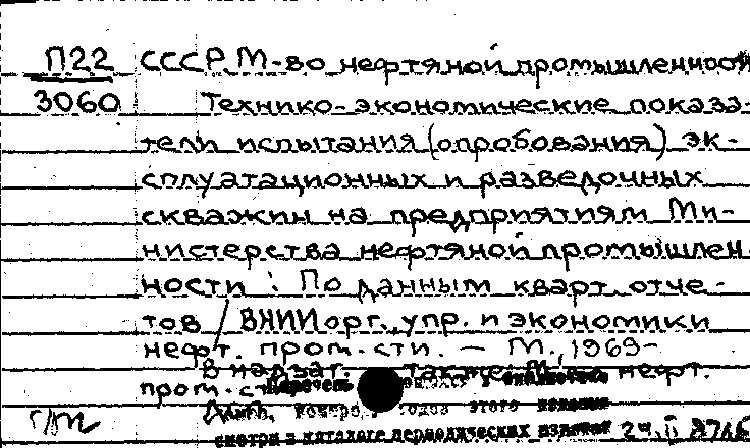 П22 СССР. М-во нефтяной промышленности
3060 Технико-экономические показа-
тели испытания (опробования) эк-
сплуатационных и разведочных
скважин на предприятиям Ми-
нистерства нефтяной промышлен-
ности : По данным кварт. отче-
тов / ВНИИорг., упр. и экономики
нефт. пром-сти. — М., 1969-
В надзаг. также: М-во нефт.
пром-сти
Перечень в библиотеке
номеров, годов этого издания
смотри в каталоге периодических изданий 24.II